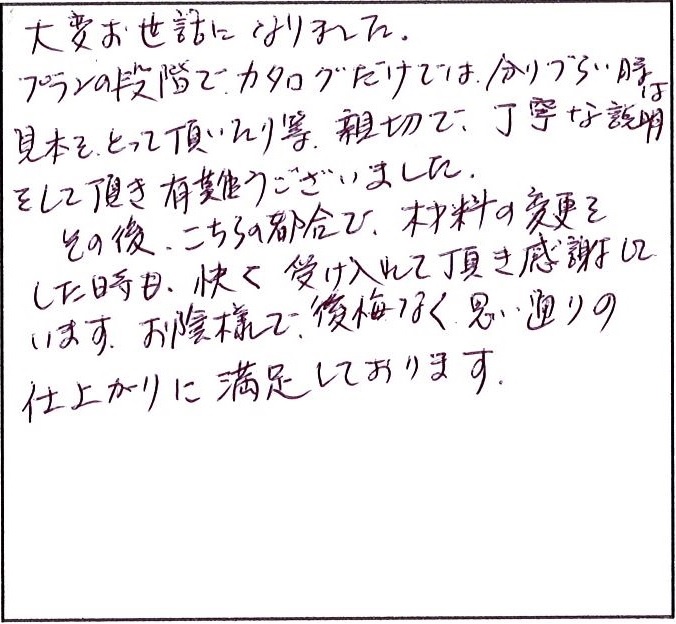 大変お世話になりました。
プランの段階で、カタログだけでは、分りづらい時は
見本を、とって頂いたり等、親切で、丁寧な説明
をして頂き有難うございました。
その後、こちらの都合で、材料の変更を
した時も、快く受け入れて頂き感謝して
います。お陰様で、後悔なく思い通りの
仕上がりに満足しております。